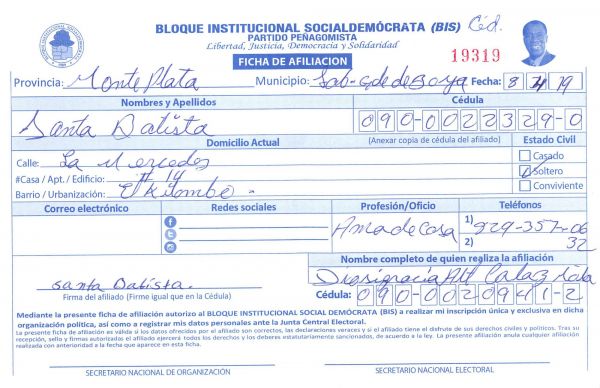 BLOQUE INSTITUCIONAL SOCIALDEMÓCRATA (BIS) Céd.
PARTIDO PEÑAGOMISTA
Libertad, Justicia, Democracia y Solidaridad
FICHA DE AFILIACION 19319
Provincia: Monte Plata Municipio: Sab-gde de Boya Fecha: 8 4 19
Nombres y Apellidos Cédula
Santa Batista 090-0022329-0
Domicilio Actual (Anexar copia de cédula del afiliado) Estado Civil
Calle: La Mercedes Casado
#Casa / Apt. / Edificio: # 14 Soltero
Barrio / Urbanización: El Kilombo. Conviviente
Correo electrónico Redes sociales Profesión/Oficio Teléfonos
Ama de Casa 1) 829-357-06
2) 32
Nombre completo de quien realiza la afiliación
Santa Batista.
Firma del afiliado (Firme igual que en la Cédula) Cédula: 090-0020941-2
Mediante la presente ficha de afiliación autorizo al BLOQUE INSTITUCIONAL SOCIAL DEMÓCRATA (BIS) a realizar mi inscripción única y exclusiva en dicha
organización política, así como a registrar mis datos personales ante la Junta Central Electoral.
La presente ficha de afiliación es válida si los datos ofrecidos por el afiliado son correctos, las declaraciones veraces y si el afiliado tiene el disfrute de sus derechos civiles y políticos. Tras su
recepción, sello y firmas autorizadas el afiliado ejercerá todos los derechos y los deberes estatutariamente sancionados, de acuerdo a la ley. La presente afiliación anula cualquier afiliación
realizada con anterioridad a la fecha que aparece en esta ficha.
SECRETARIO NACIONAL DE ORGANIZACIÓN SECRETARIO NACIONAL ELECTORAL